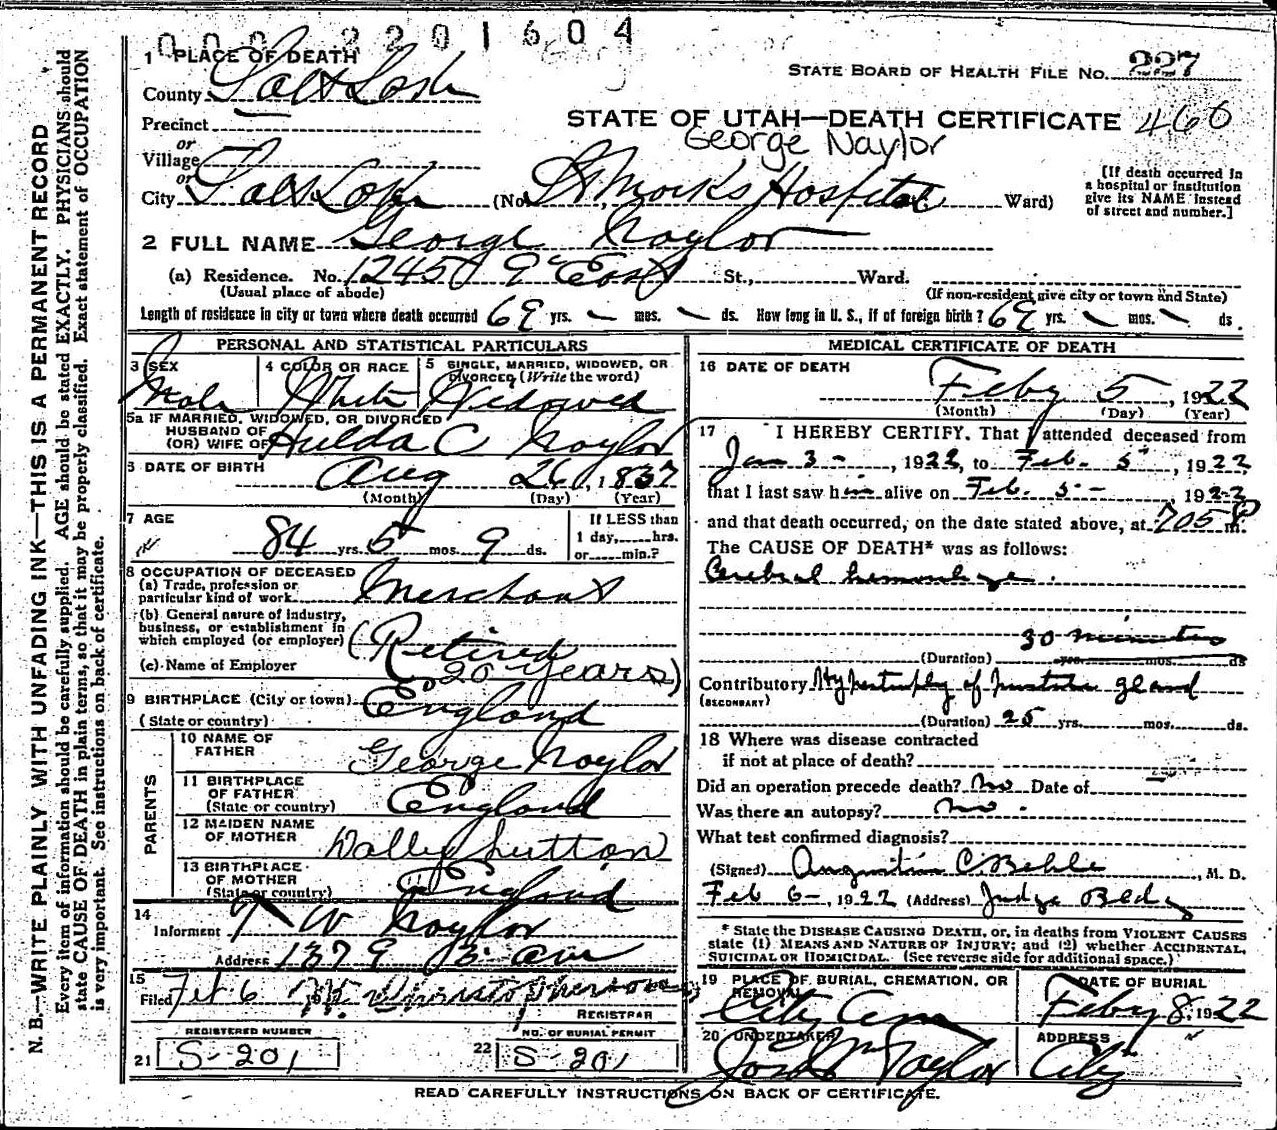 0002201604
1 PLACE OF DEATH
STATE BOARD OF HEALTH FILE NO. 227
County Salt Lake
Precinct
STATE OF UTAH—DEATH CERTIFICATE 466
George Naylor
or
Village
or
City Salt Lake (No. St Marks Hospital Ward)
[If death occurred in
a hospital or institution
give its NAME instead
of street and number.]
2 FULL NAME George Naylor
(a) Residence. No. 1245 S 9" East St., Ward.
(Usual place of abode) (If non-resident give city or town and State)
Length of residence in city or town where death occurred 69 yrs. – mos. – ds. How long in U. S., if of foreign birth? 69 yrs. – mos. – ds.
PERSONAL AND STATISTICAL PARTICULARS
3 SEX 4 COLOR OR RACE 5 SINGLE, MARRIED, WIDOWED, OR
DIVORCED (Write the word)
Male White Widowed
5a IF MARRIED, WIDOWED, OR DIVORCED
HUSBAND OF
(OR) WIFE OF Hulda C Naylor
6 DATE OF BIRTH Aug 26, 1837
(Month) (Day) (Year)
7 AGE
84 yrs. 5 mos. 9 ds.
If LESS than
1 day, hrs.
or min.?
8 OCCUPATION OF DECEASED
(a) Trade, profession or
particular kind of work Merchant
(b) General nature of industry,
business, or establishment in
which employed (or employer) (Retired
(c) Name of Employer 20 years)
9 BIRTHPLACE (City or town)
(State or country) England
PARENTS
10 NAME OF
FATHER George Naylor
11 BIRTHPLACE
OF FATHER
(State or country) England
12 MAIDEN NAME
OF MOTHER Dolley Sutton
13 BIRTHPLACE
OF MOTHER
(State or country) England
14
Informent W Naylor
Address 1379 3 Ave
15
Filed Feb 6
REGISTRAR
REGISTERED NUMBER NO. OF BURIAL PERMIT
21 S-201 22 S-201
MEDICAL CERTIFICATE OF DEATH
16 DATE OF DEATH
Feby 5, 1922
(Month) (Day) (Year)
17 I HEREBY CERTIFY, That I attended deceased from
Jan 3-, 1922, to Feb. 5, 1922
that I last saw him alive on Feb. 5-, 1922
and that death occurred, on the date stated above, at 705 P m.
The CAUSE OF DEATH* was as follows:
Cerebral hemorrhage.
30 minutes
(Duration) yrs. mos. ds
Contributory Hypertrophy of prostate gland
(SECONDARY)
(Duration) 25 yrs. mos. ds.
18 Where was disease contracted
if not at place of death?
Did an operation precede death? No Date of
Was there an autopsy? no.
What test confirmed diagnosis?
(Signed) C. Behle, M. D.
Feb 6-, 1922 (Address) Judge Bldg
* State the DISEASE CAUSING DEATH, or, in deaths from VIOLENT CAUSES
state (1) MEANS AND NATURE OF INJURY; and (2) whether ACCIDENTAL,
SUICIDAL OR HOMICIDAL. (See reverse side for additional space.)
19 PLACE OF BURIAL, CREMATION, OR
REMOVAL
City Cem
DATE OF BURIAL
Feby 8, 1922
20 UNDERTAKER
Taylor
ADDRESS
City
READ CAREFULLY INSTRUCTIONS ON BACK OF CERTIFICATE.
N. B.—WRITE PLAINLY WITH UNFADING INK—THIS IS A PERMANENT RECORD
Every item of information should be carefully supplied. AGE should be stated EXACTLY. PHYSICIANS should
state CAUSE OF DEATH in plain terms, so that it may be properly classified. Exact statement of OCCUPATION
is very important. See instructions on back of certificate.